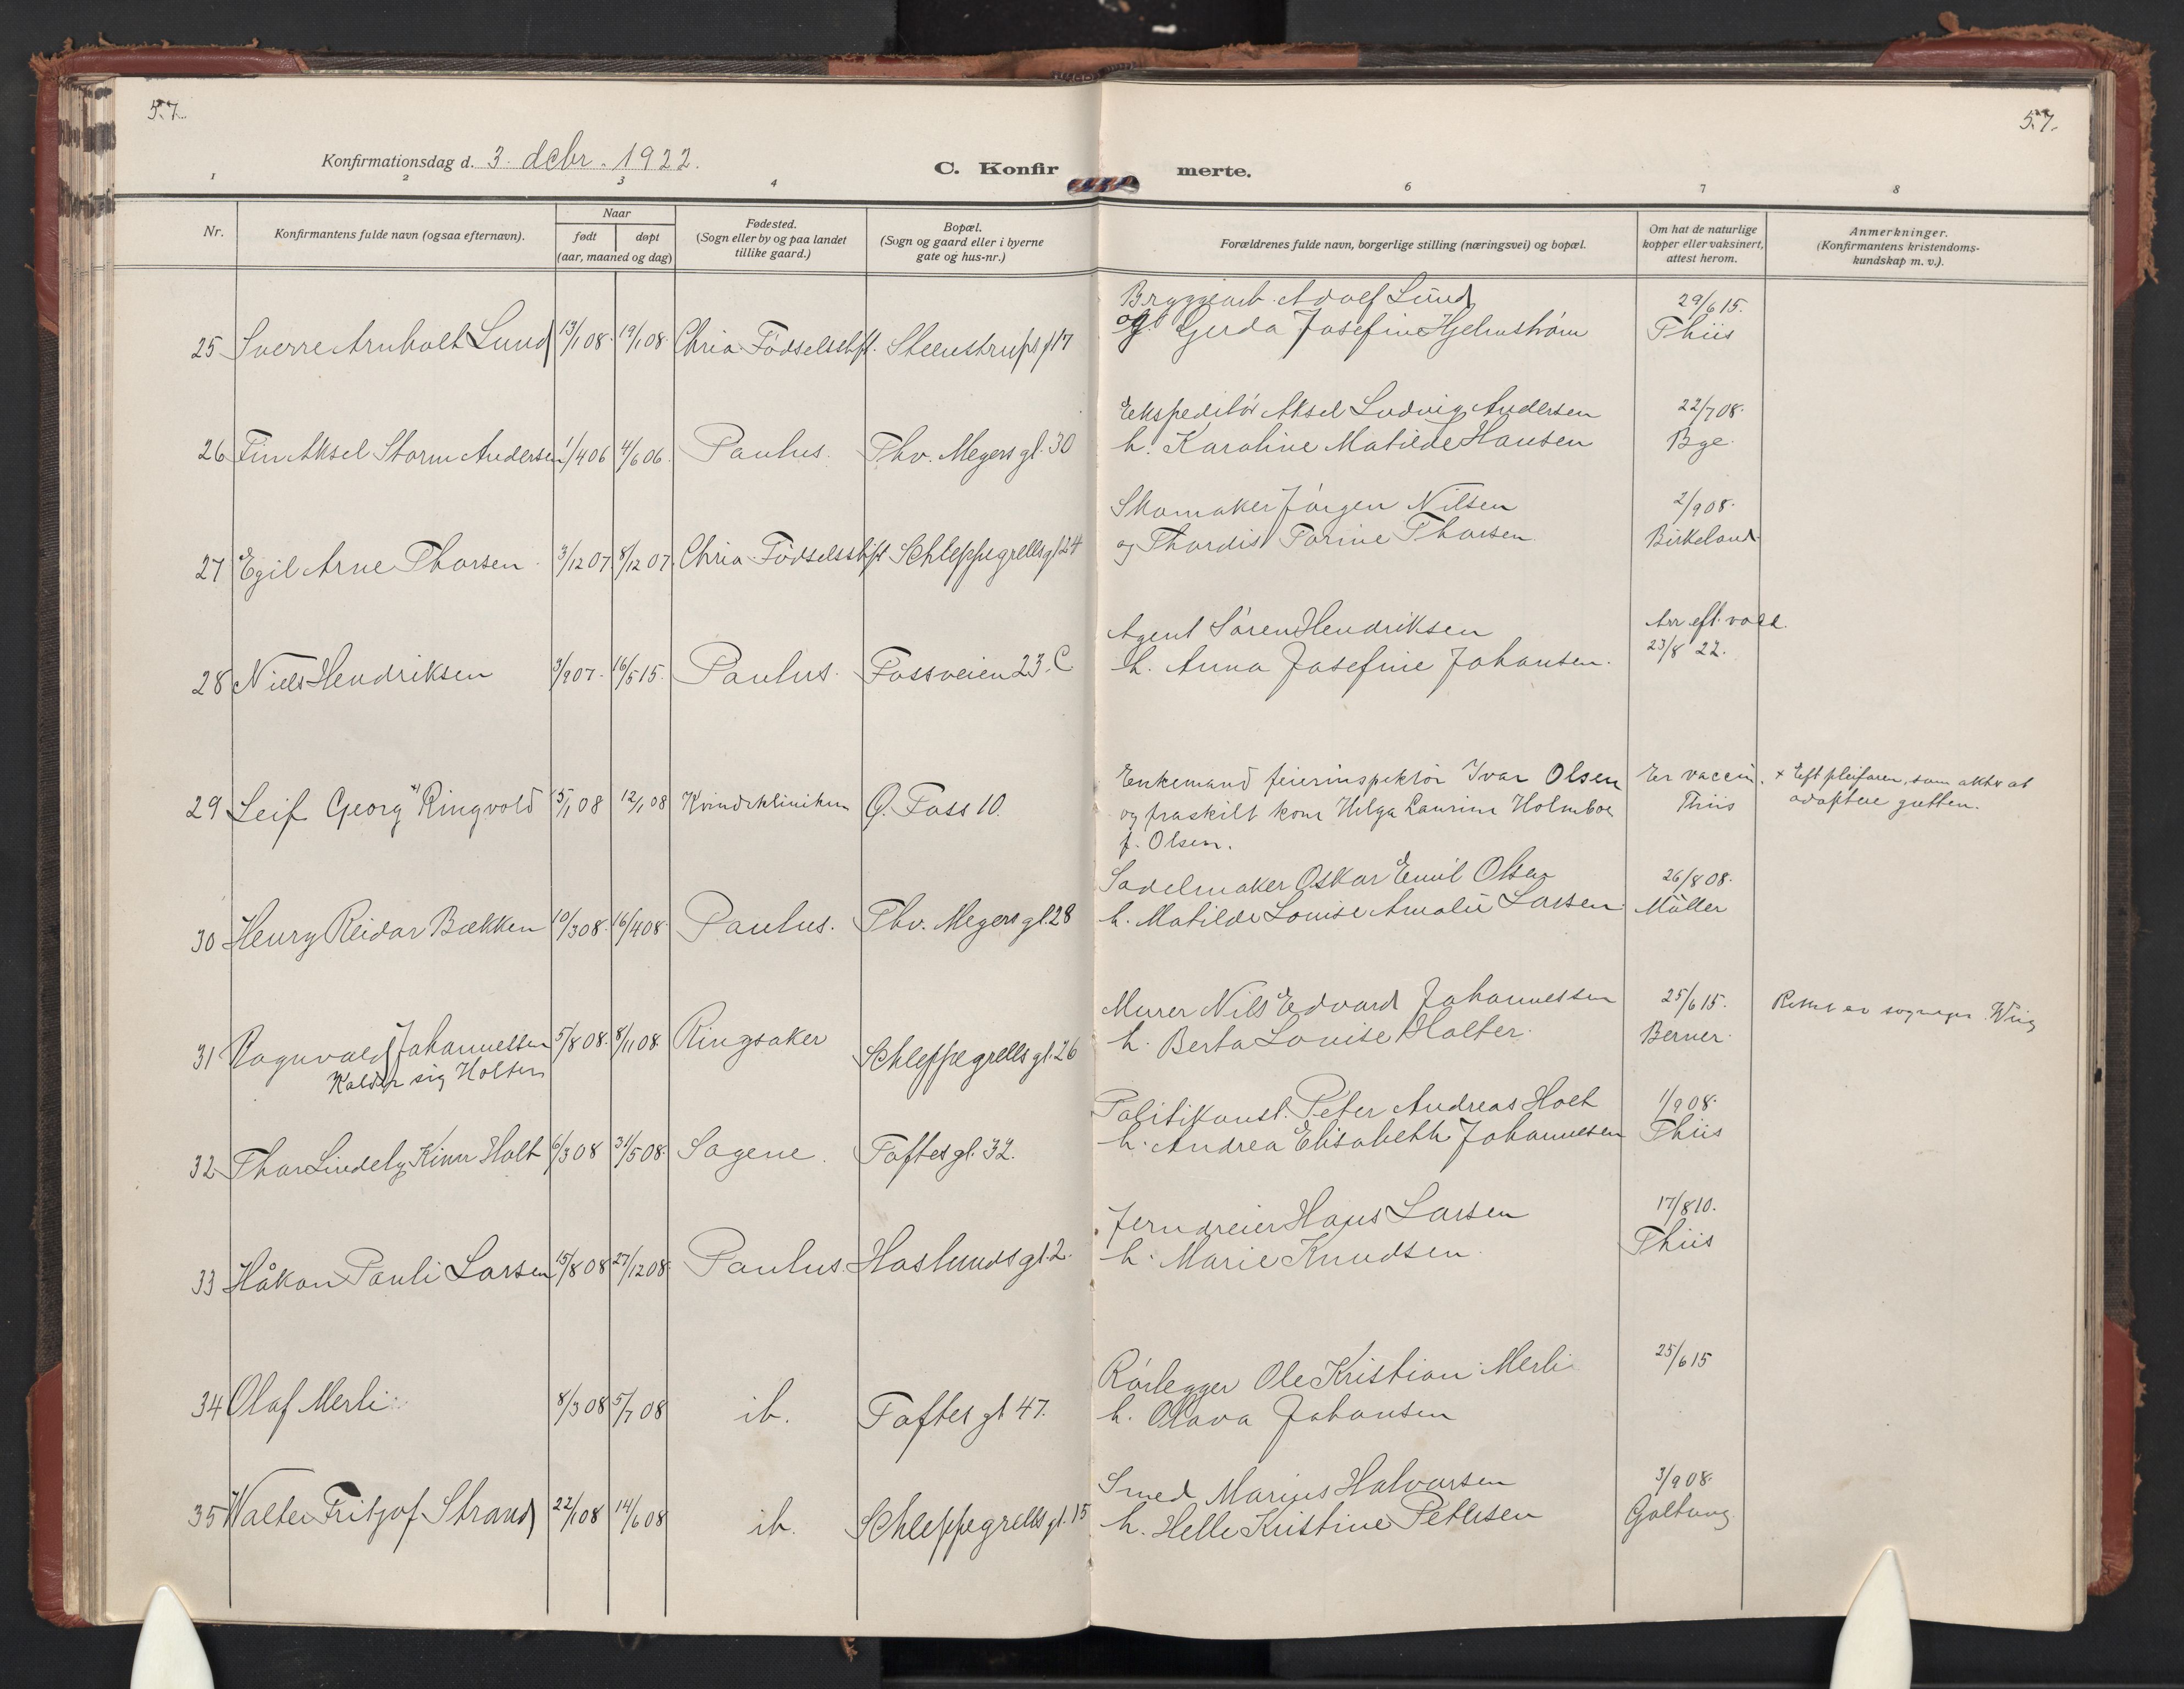 57.
57.
Konfirmationsdag d. 3. debr. 1922.
C. Konfir merte.
1 2 3 4 6 7 8
Nr.
Konfirmantens fulde navn (ogsaa efternavn).
Naar
født døpt
(aar, maaned og dag)
Fødested.
(Sogn eller by og paa landet
tillike gaard.)
Bopæl.
(Sogn og gaard eller i byerne
gate og hus-nr.)
Forældrenes fulde navn, borgerlige stilling (næringsvei) og bopæl.
Om hat de naturlige
kopper eller vaksinert,
attest herom.
Anmerkninger.
(Konfirmantens kristendoms-
kundskap m. v.).
Bryggearb. Adolf Lund 29/6 15.
25 Sverre Arnholt Lund 13/1 08. 19/1 08. Chria Fødselsstift. Steenstrups gt 17 og Gerda Josefine Hjelmstrøm Thiis
Ekspeditør Aksel Ludvig Andersen 22/7 08.
26 Fin Aksel Storm Andersen 1/4 06 4/6 06. Paulus. Thv. Meyers gt. 30 h. Karoline Matilde Hansen Bge.
Skomaker Jørgen Nilsen 2/9 08.
27 Egil Arne Thorsen. 3/12 07. 8/12 07. Chria Fødselsstift Schleppegrellsgt 24 og Thordis Torine Thorsen. Birkeland
Agent Søren Hendriksen Arr eft. vacc.
28 Niels Hendriksen 3/9 07. 16/5 15. Paulus. Fossveien 23. C h. Anna Josefine Johansen. 23/8 22.
Enkemand feierinspektør Ivar Olsen Er vaccin. + Eft pleifaren, som akter at
29 Leif Georg Ringvold 5/1 08 12/1 08 Kvindeklinikken Ø. Foss 10. og fraskilt kone Helga Laurine Holmboe Thiis adoptere gutten.
f. Olsen.
Sadelmaker Oskar Emil Olsen 26/8 08.
30 Henry Reidar Bækken 10/3 08. 16/4 08. Paulus. Thv. Meyers gt. 28 h. Matilde Louise Amalie Larsen. Müller
Murer Nils Edvard Johannessen 25/6 15. sognepr. Wiig
31 Ragnvald Johannessen 5/8 08. 8/11 08. Ringsaker Schleppegrells gt. 26 h. Berta Louise Holter. Berner.
Kalder sig Holter
Politikonst. Peter Andreas Holt 1/9 08.
32 Thor Lindely Kinn Holt 6/3 08 31/5 08. Sagene. Toftes gt. 32. h. Andrea Elisabeth Johannessen Thiis
Jerndreier Hans Larsen 17/8 10.
33 Håkon Pauli Larsen 15/8 08 27/12 08. Paulus. Haslunds gt. 2. h. Marie Knudsen. Thiis
Rørlegger Ole Kristian Merli 25/6 15
34 Olaf Merli. 8/3 08 5/7 08 ib. Toftes gt 47. h. Olava Johansen
Smed Marius Halvorsen 3/9 08.
35 Walter Fritjof Strand 22/1 08 14/6 08 ib. Schleppegrells gt. 15 h. Helle Kristine Pettersen Galtung.